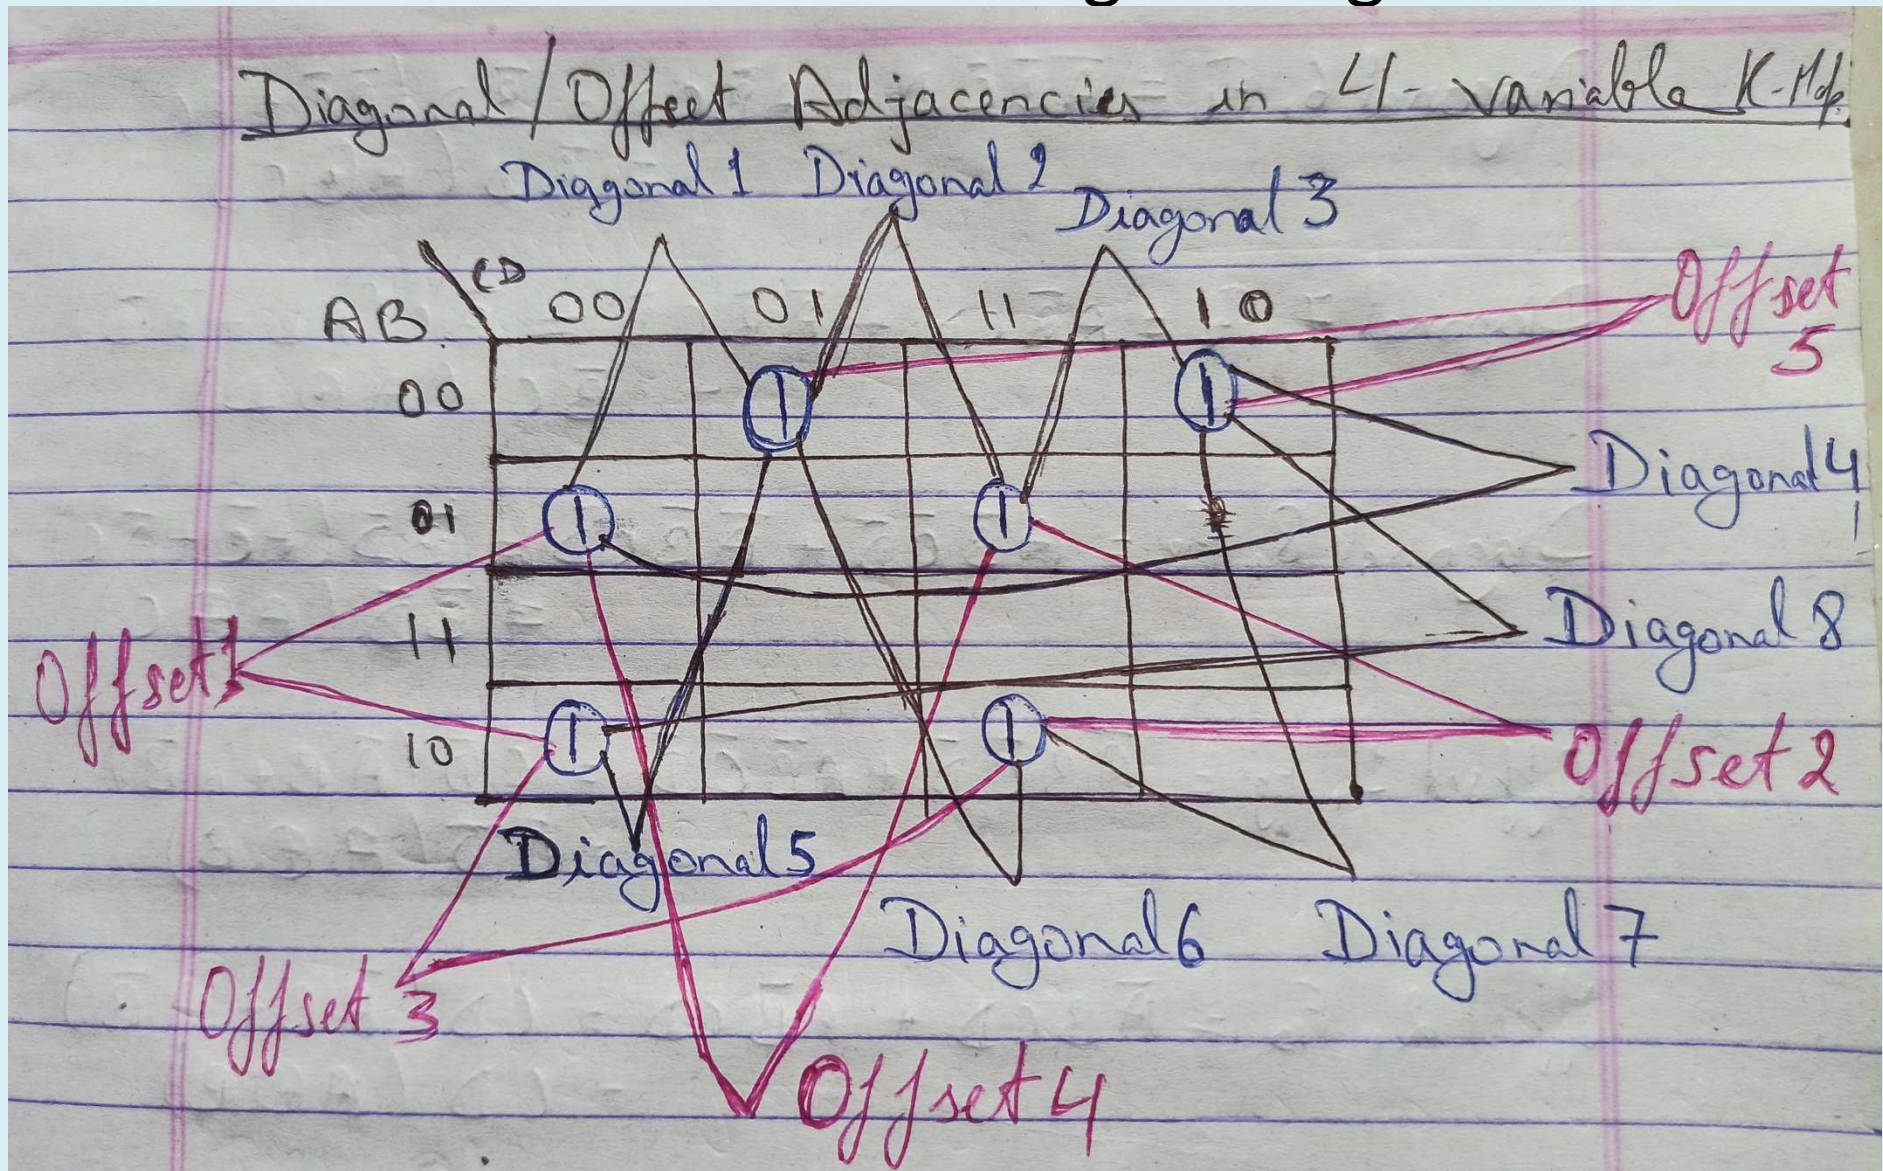 Diagonal/Offset Adjacencies in 4-variable K-Map
Diagonal 1 Diagonal 2
Diagonal 3
CD
AB 00 01 11 10
Offset 5
00 1 1
Diagonal 4
01 1 1
Diagonal 8
11
Offset 1
10 1 1
Offset 2
Diagonal 5
Diagonal 6 Diagonal 7
Offset 3
Offset 4